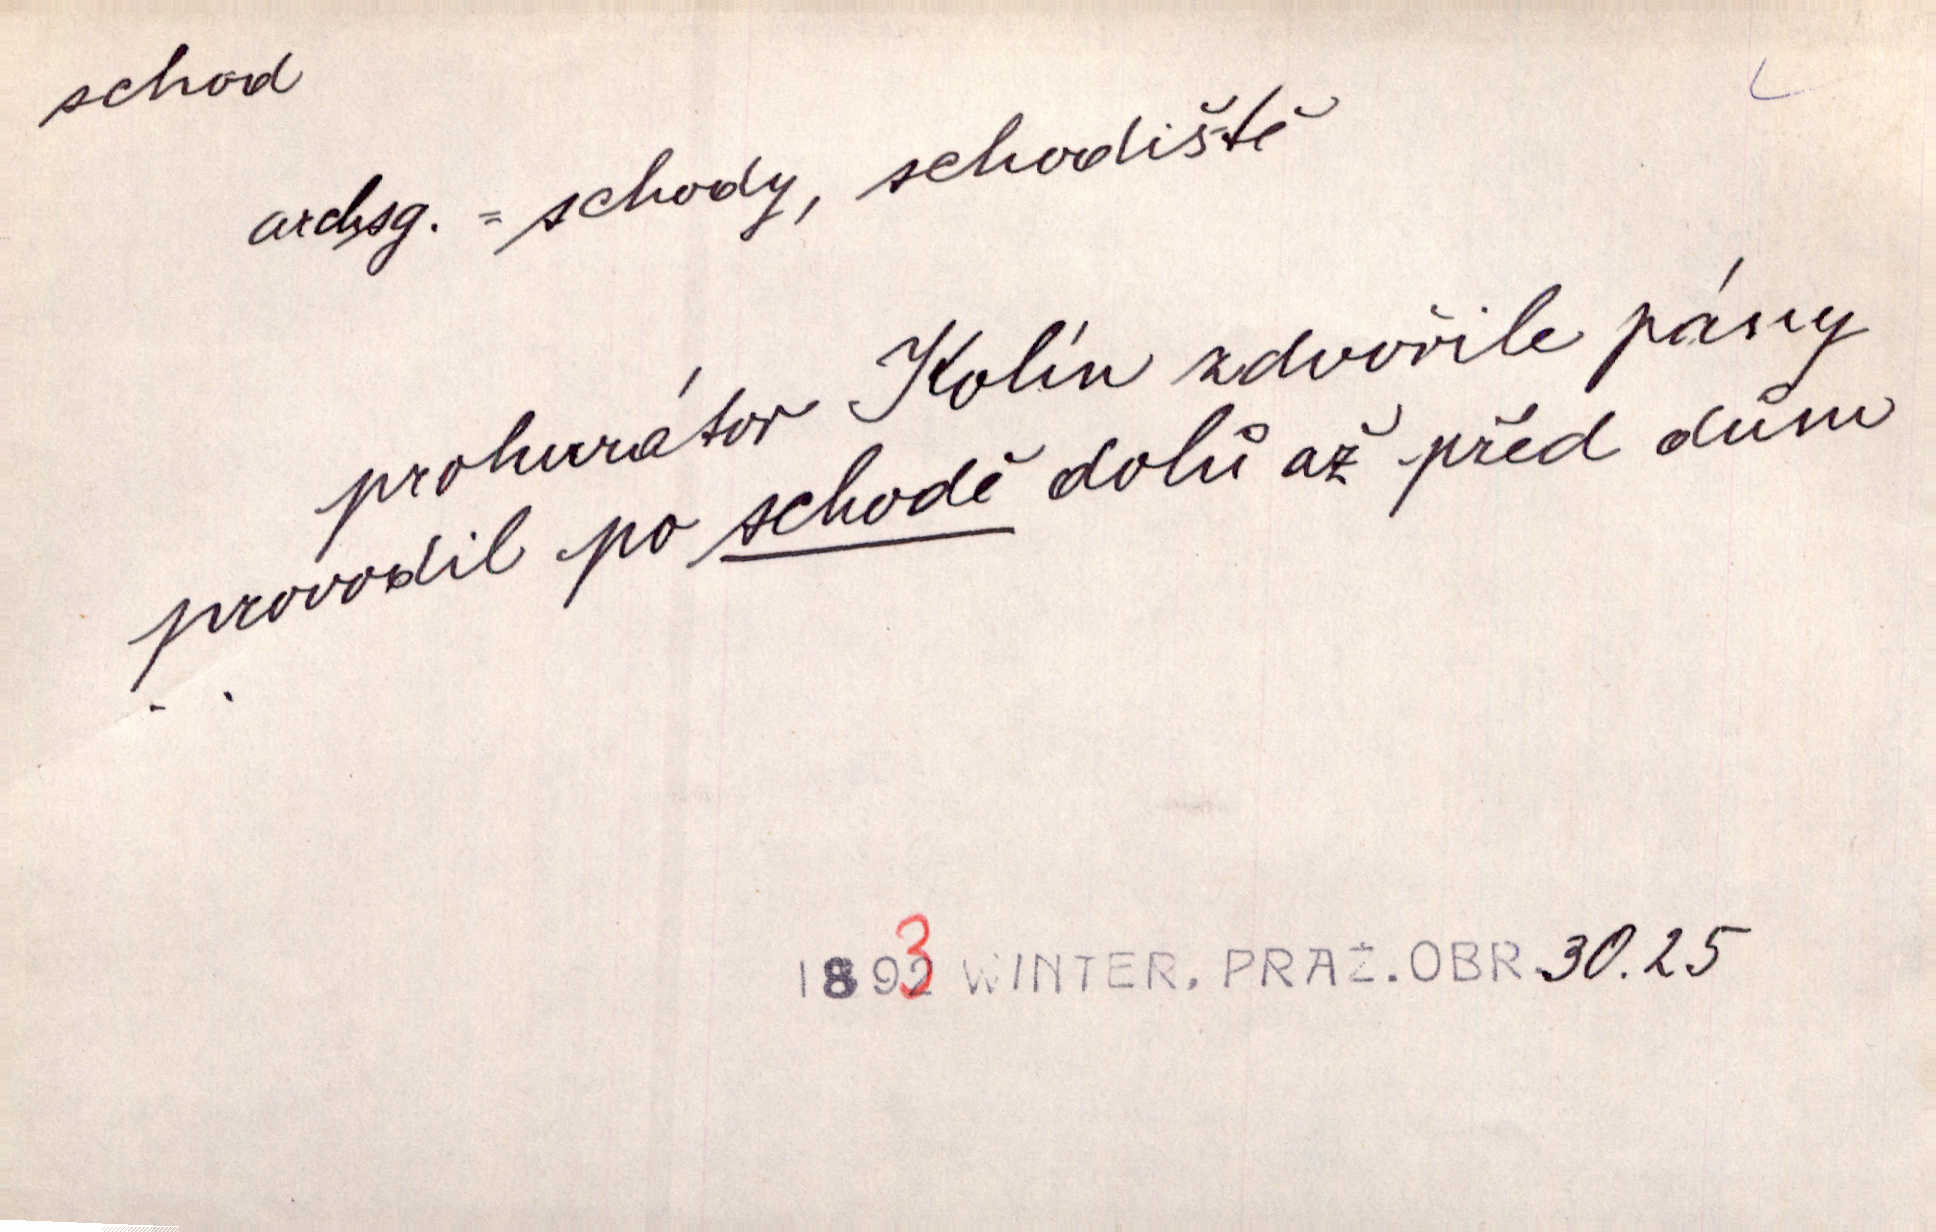 schod
arch sg. = schody, schodiště
prokurátor Kolín zdvořile pány
provodil po schodě dolů až před dům
. .
1893 WINTER, PRAŽ. OBR. 30.25